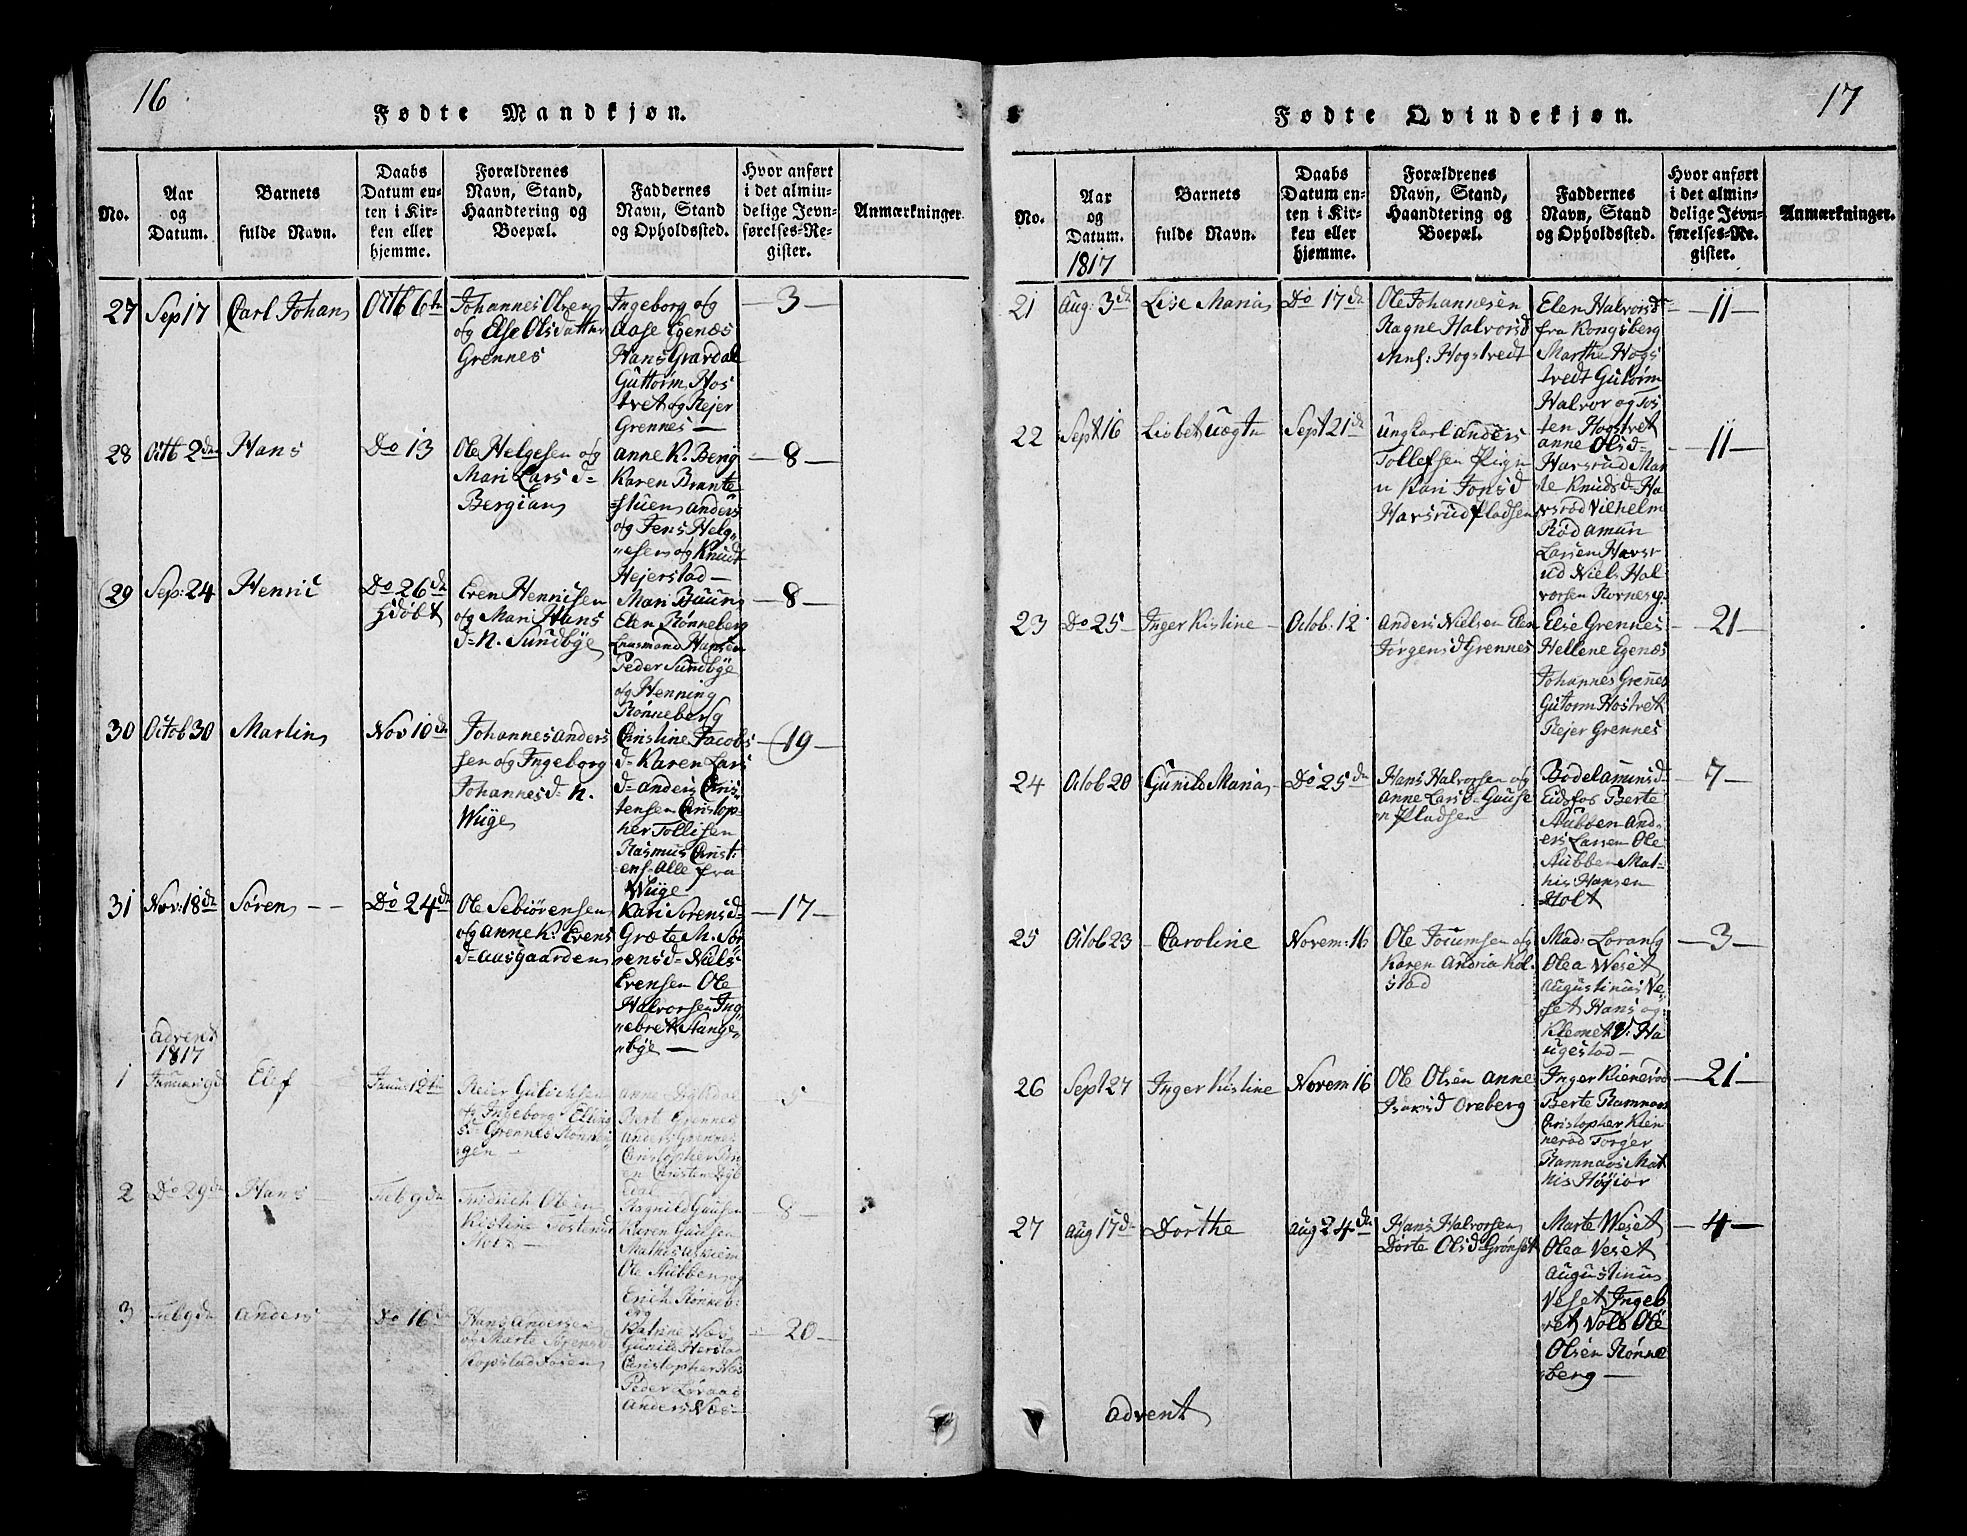 16
Fødte Mandkjøn.
No.
Aar
og
Datum.
Barnets
fulde Navn.
Daabs
Datum en-
ten i Kir-
ken eller
hjemme.
Forældrenes
Navn, Stand,
Haandtering og
Boepæl.
Faddernes
Navn, Stand
og Opholdssted.
Hvor anført
i det almin-
delige Jevn-
førelses-Re-
gister.
Anmærkninger
27
Sep 17
Carl Johan
Octb 6te
Johannes Olsen
og Else Olsdatter
Grennes
Ingeborg og
Aase Egenæs
Hans Grardal
Guttorm Hos
tvet og Rejer
Grennes —
— 3 —
28
Octb 2dn
Hans
Do 13
Ole Helgesen og
Mari Lars d=
Bergian
anne K. Berg
Karen Brante
=stuen anders
og Jens Helg
"esen og Knudt
Hejerstad —
— 8 —
29
Sep: 24
Henric
Do 26dn
Hdøbt
Even Henrisen
og Mari Hans
d= N. Sundbye
Mari Buun
Elen Rønneberg
Hansen
Peder Sundbye
og Henning
Rønneberg
— 8 —
30
Octob 30
Martin
Nov 10dn
Johannes anders
sen og Ingeborg
Johannes d= N.
Wüge
Christine Jacobs
d= Karen Lars
d= anders Chris
tensen Christop
her Tollisen
Rasmus Christ:
ens= alle fra
Wüge
— 19 —
31
Nov: 18dn
Søren — —
Do 24dn
Ole Sebiørensen
og anne K: Evens
d= aasgaarden
Kari Sørens d=
Græte M. Sør
rens d= Niels
Evensen Ole
Halvorsen Ing
"ebret Stange
"bye —
— 17 —
advent
1817
1
Januari 9d
Elef
Rejer
og Ingeborg Elling
sd= Grennes Rønnin
gen —
anne Dybdal
Bert Grennes
anders Grennes
Christopher
en Christen Dyb
dal
5
2
Do 29dn
Hans
Feb 9dn
Fridrich Olsen
Kistine Tostensd
Holt —
Ragnild Gausen
Karen Gausen
Mathis askiem
Ole Stubben og
Erich Rønneb:
erg
— 8 —
3
Feb 9dn
anders
Do 16dn
Hans Andersen
og Marte Sørensd
Kopstad
Katrine Næs
Gunild Herstad
Christopher Næs
Peder
Anders Næs —
— 20 —
17
Fødte Qvindekjøn.
No.
Aar
og
Datum.
1817
Barnets
fulde Navn.
Daabs
Datum en-
ten i Kir-
ken eller
hjemme.
Forældrenes
Navn, Stand,
Haandtering og
Boepæl.
Faddernes
Navn, Stand
og Opholdssted.
Hvor anført
i det almin-
delige Jevn-
førelses-Re-
gister.
Anmærkninger.
21
Aug: 3dn
Lise Maria
Do 17dn
Ole Johannesen
Ragne Halvorsd
Hogstvedt
Elen Halvorsd=
fra Kongsberg
Marthe Hogs
tvedt Gutorm
Halvor og Tos
ten Hogstvet
— 11 —
22
Sept 16
Lisbet uegte
Sept 21dn
Ungkarl anders
Tollefsen Pige
n Kari Jonsd
Harsrud Pladsen
anne Olsd=
Harsrud Mar
te Knudsd= Ha
rsrød Vilhelm
Rød amun
Larsen Harsr
ud Niels Hal
vorsen Kornesg.
— 11 —
23
Do 25
Inger Kistine
Octob. 12
Anders Nielsen Elen
Jørgensd Grennes
Else Grennes
Hellene Egenæs
Johannes Grenes
Gutorm Hostvet
Rejer Grennes
— 21 —
24
Octob 20
Gunild Maria
Do 25dn
Hans Halvorsen og
Anne Larsd= Gause
n Pladsen
Bodel amunsd=
Eidsfos Berte
Stubben And=
ers Larsen Ole
Stubben Mat-
his Hansen
Holt
— 7 —
25
Octob 23
Caroline
Novem: 16
Ole Jocumsen og
Karen Andria Kol
stad
Mad: Lorang
Olea Weset
augustinus Ve=
set Hans og
Klemet V: Ha
ugestad —
— 3 —
26
Sept 27
Inger Kistine
Novem 16
Ole Olsen anne
Isaksd Oreberg
Inger Kienerød
Berte Ramnaas
Christopher Kien
nerød Torger
Ramnaas Mat
his Højiør
— 21 —
27
Aug 17dn
Dorthe
Aug 24dn
Hans Halvorsen
Dorte Olsd= Grønset
Marte Weset
Olea Veset
augustinus
Veset Ingeb
ret Vold Ole
Olsen Rønne
berg —
— 4 —
advent